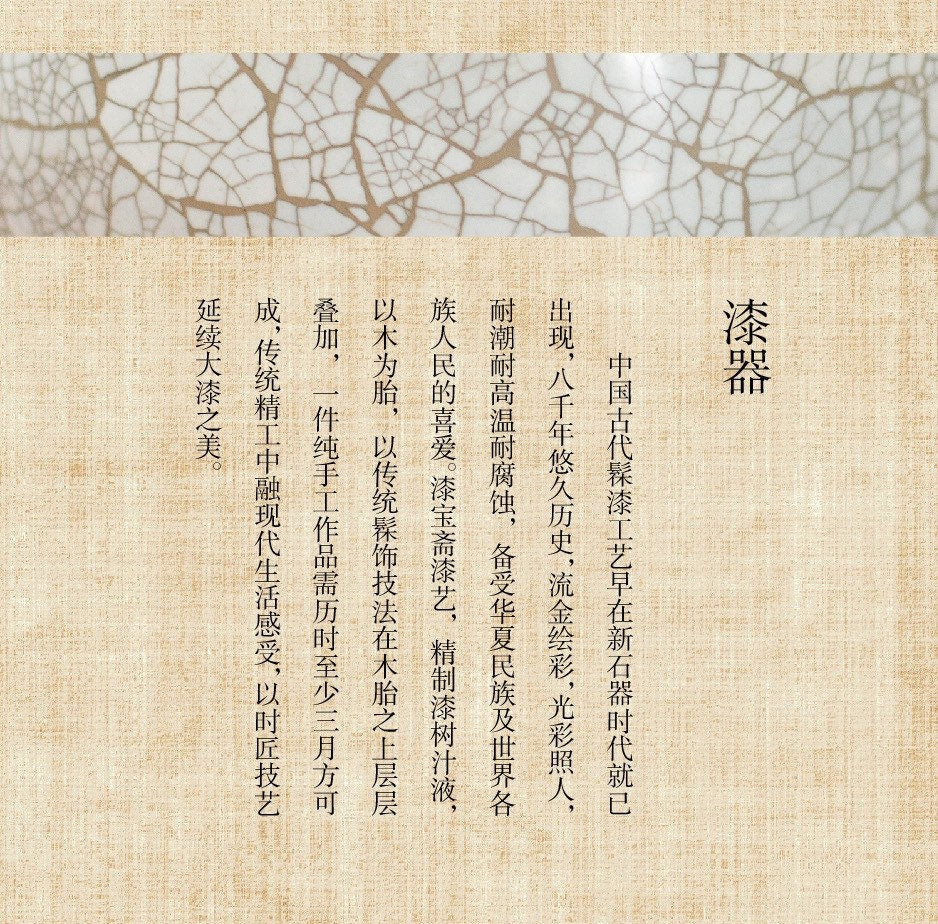 漆器
中国古代髹漆工艺早在新石器时代就已
出现，八千年悠久历史，流金绘彩，光彩照人，
耐潮耐高温耐腐蚀，备受华夏民族及世界各
族人民的喜爱。漆宝斋漆艺，精制漆树汁液，
以木为胎，以传统髹饰技法在木胎之上层层
叠加，一件纯手工作品需历时至少三月方可
成，传统精工中融现代生活感受，以时匠技艺
延续大漆之美。